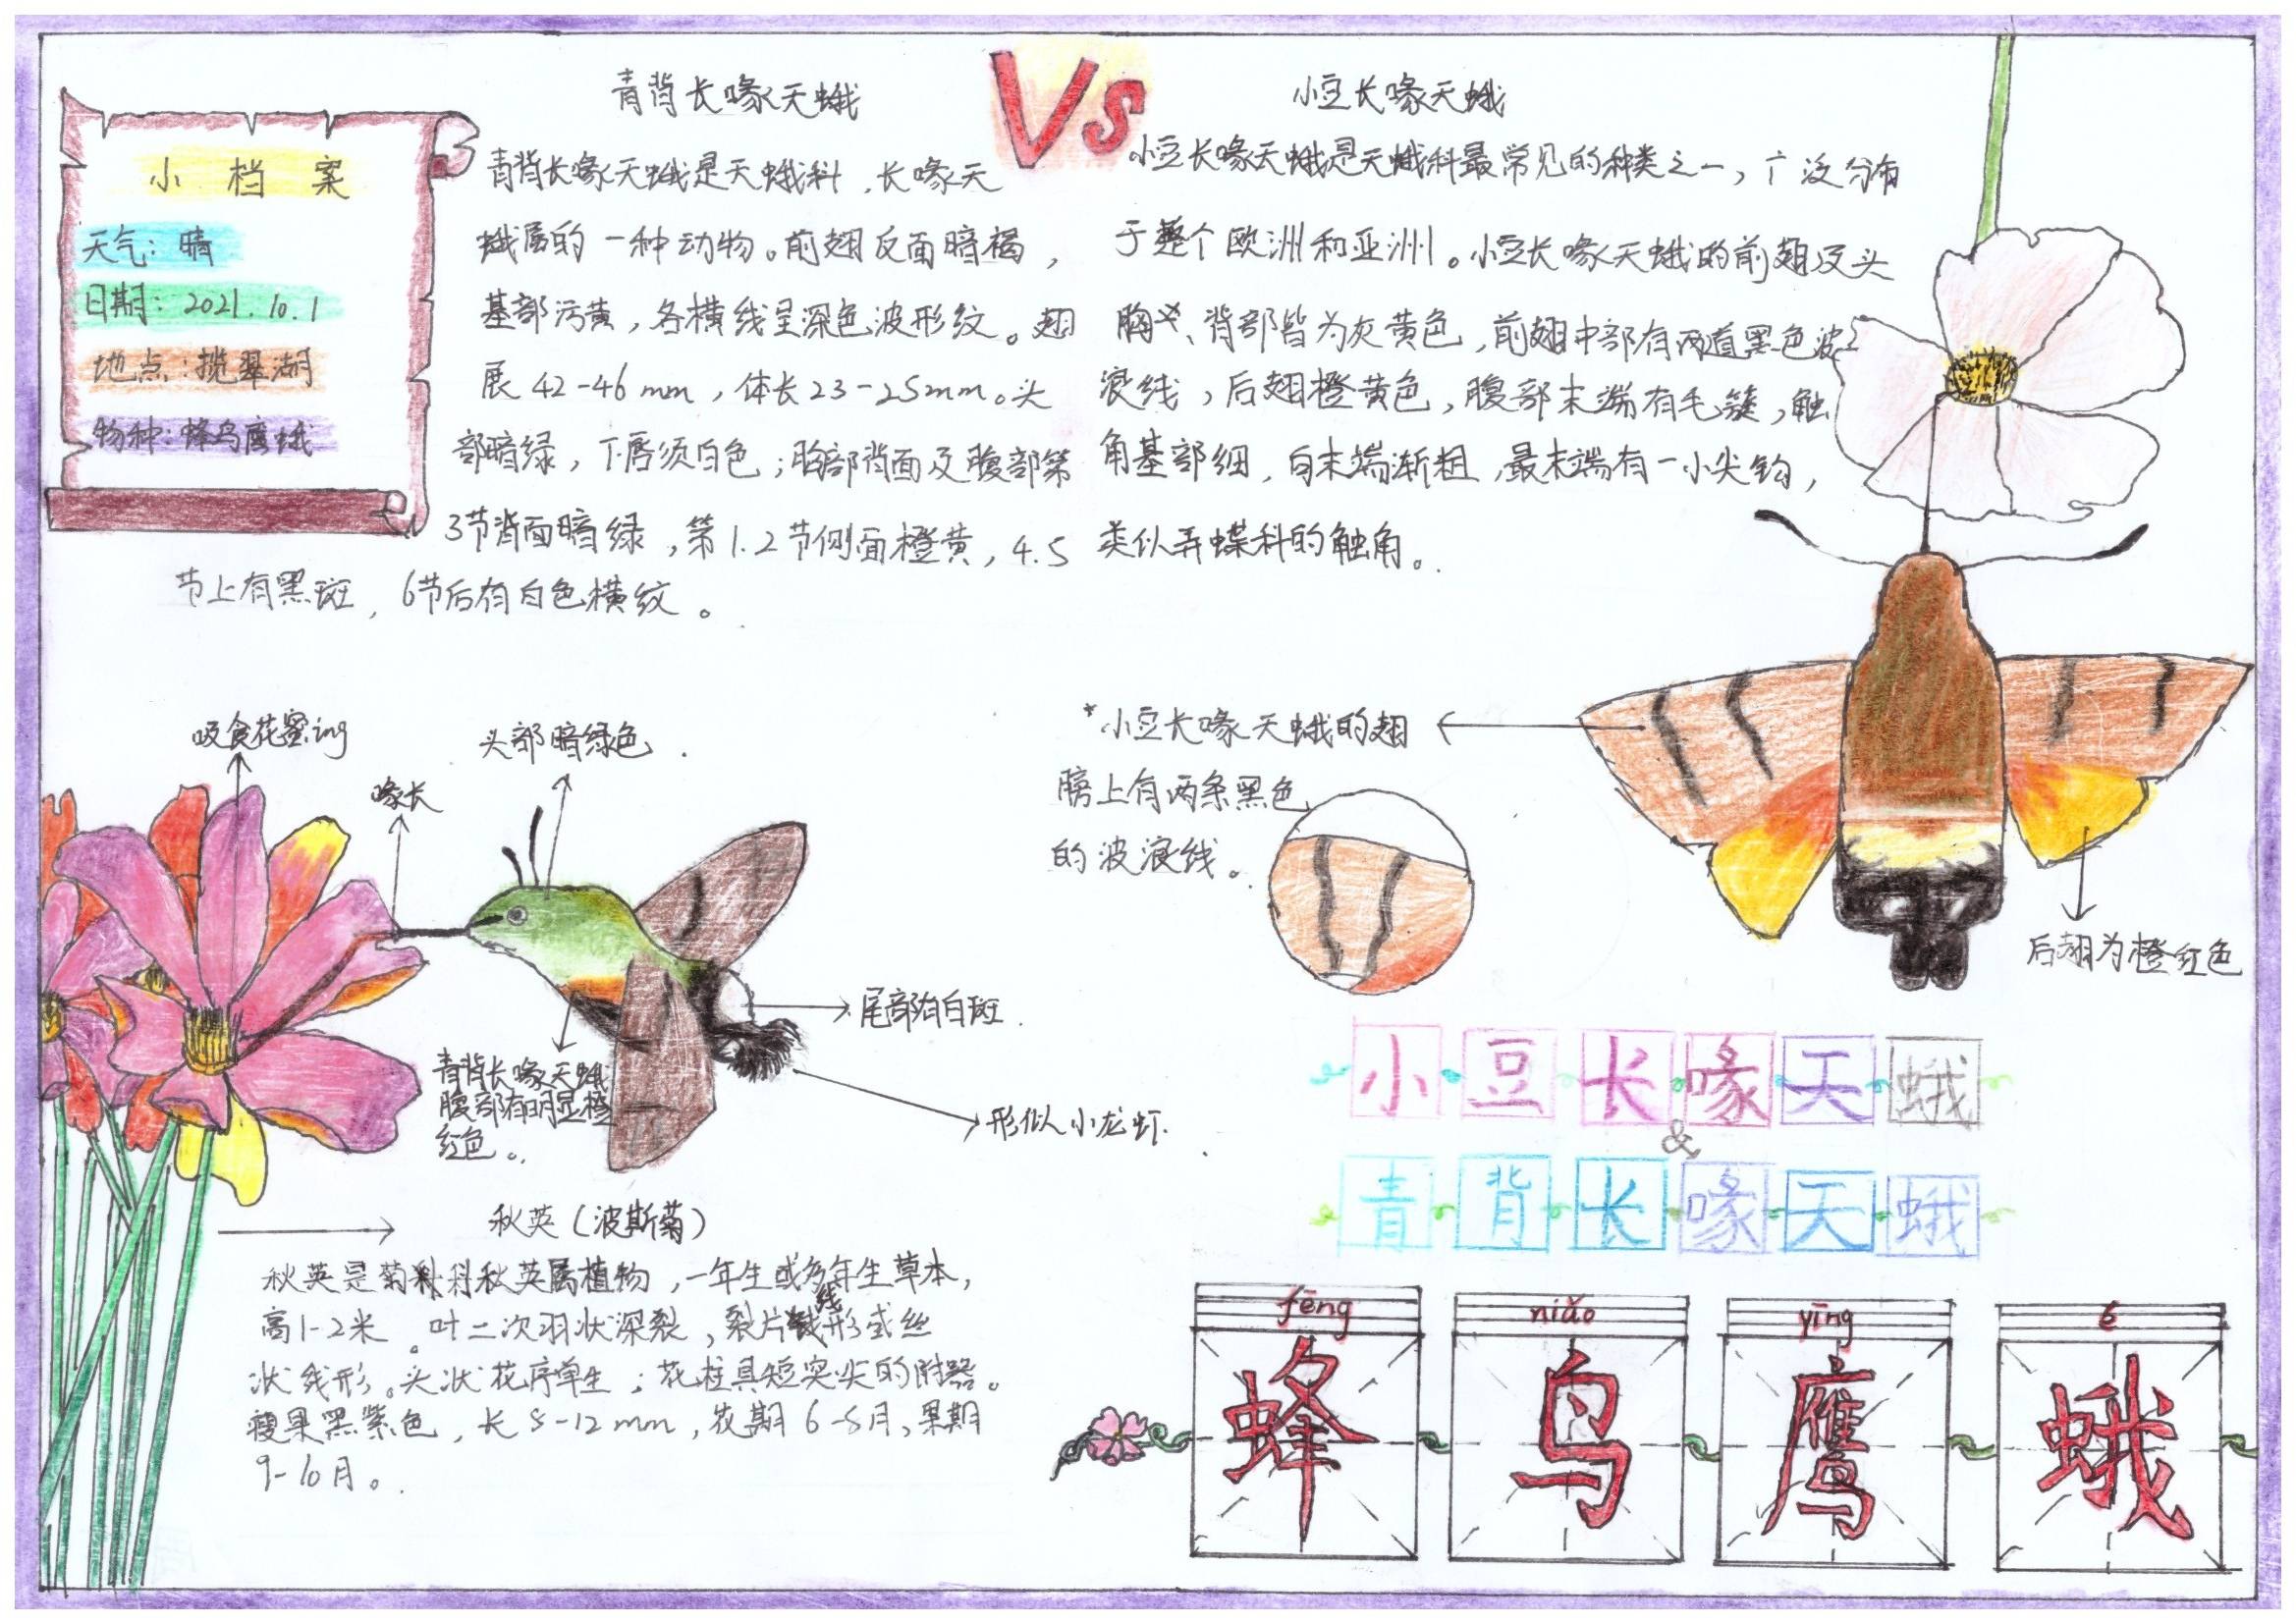 小档案
天气：晴
日期：2021.10.1
地点：揽翠湖
物种：蜂鸟鹰蛾
青背长喙天蛾
青背长喙天蛾是天蛾科，长喙天
蛾属的一种动物。前翅反面暗褐，
基部污黄，各横线呈深色波形纹。翅
展42-46mm，体长23-25mm。头
部暗绿，下唇须白色；胸部背面及腹部第
3节背面暗绿，第1.2节侧面橙黄，4.5
节上有黑斑，6节后有白色横纹。
Vs
小豆长喙天蛾
小豆长喙天蛾是天蛾科最常见的种类之一，广泛分布
于整个欧洲和亚洲。小豆长喙天蛾的前翅及头
胸、背部皆为灰黄色，前翅中部有两道黑色波
浪线，后翅橙黄色，腹部末端有毛簇，触
角基部细，向末端渐粗，最末端有一小尖钩，
类似弄蝶科的触角。
吸食花蜜ing
喙长
头部暗绿色
尾部有白斑
青背长喙天蛾
腹部有明显橙
红色。
形似小龙虾.
*小豆长喙天蛾的翅
膀上有两条黑色
的波浪线。
后翅为橙红色
秋英（波斯菊）
秋英是菊科秋英属植物，一年生或多年生草本，
高1-2米。叶二次羽状深裂，裂片线形或丝
状线形。头状花序单生；花柱具短突尖的附器。
瘦果黑紫色，长8-12mm，花期6-8月，果期
9-10月。
小豆长喙天蛾
&
青背长喙天蛾
fēng niǎo yīng é
蜂鸟鹰蛾